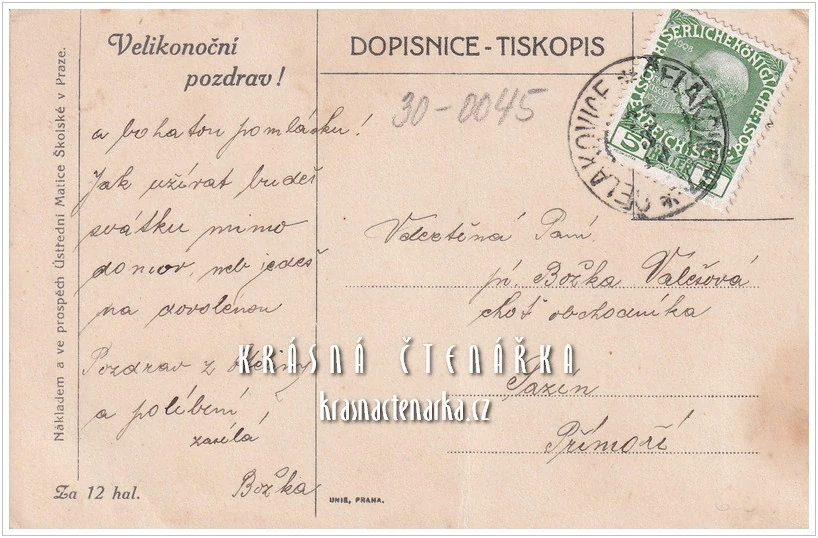 Velikonoční
pozdrav!
DOPISNICE - TISKOPIS
30-0045
ČELAKOVICE * ČELAKOVICE *
1908
5
a bohatou pomlázku!
Jak užívat budeš
svátků mimo
domov, neb jedeš
na dovolenou
Pozdrav z
a políbení
zasílá
Božka
Za 12 hal.
Nákladem a ve prospěch Ústřední Matice Školské v Praze.
UNIE, PRAHA.
Vdectěná Paní
pí. Božka Valešová
choť obchodníka
Sazín
Přímoří
KRÁSNÁ ČTENÁŘKA
krasnactenarka.cz